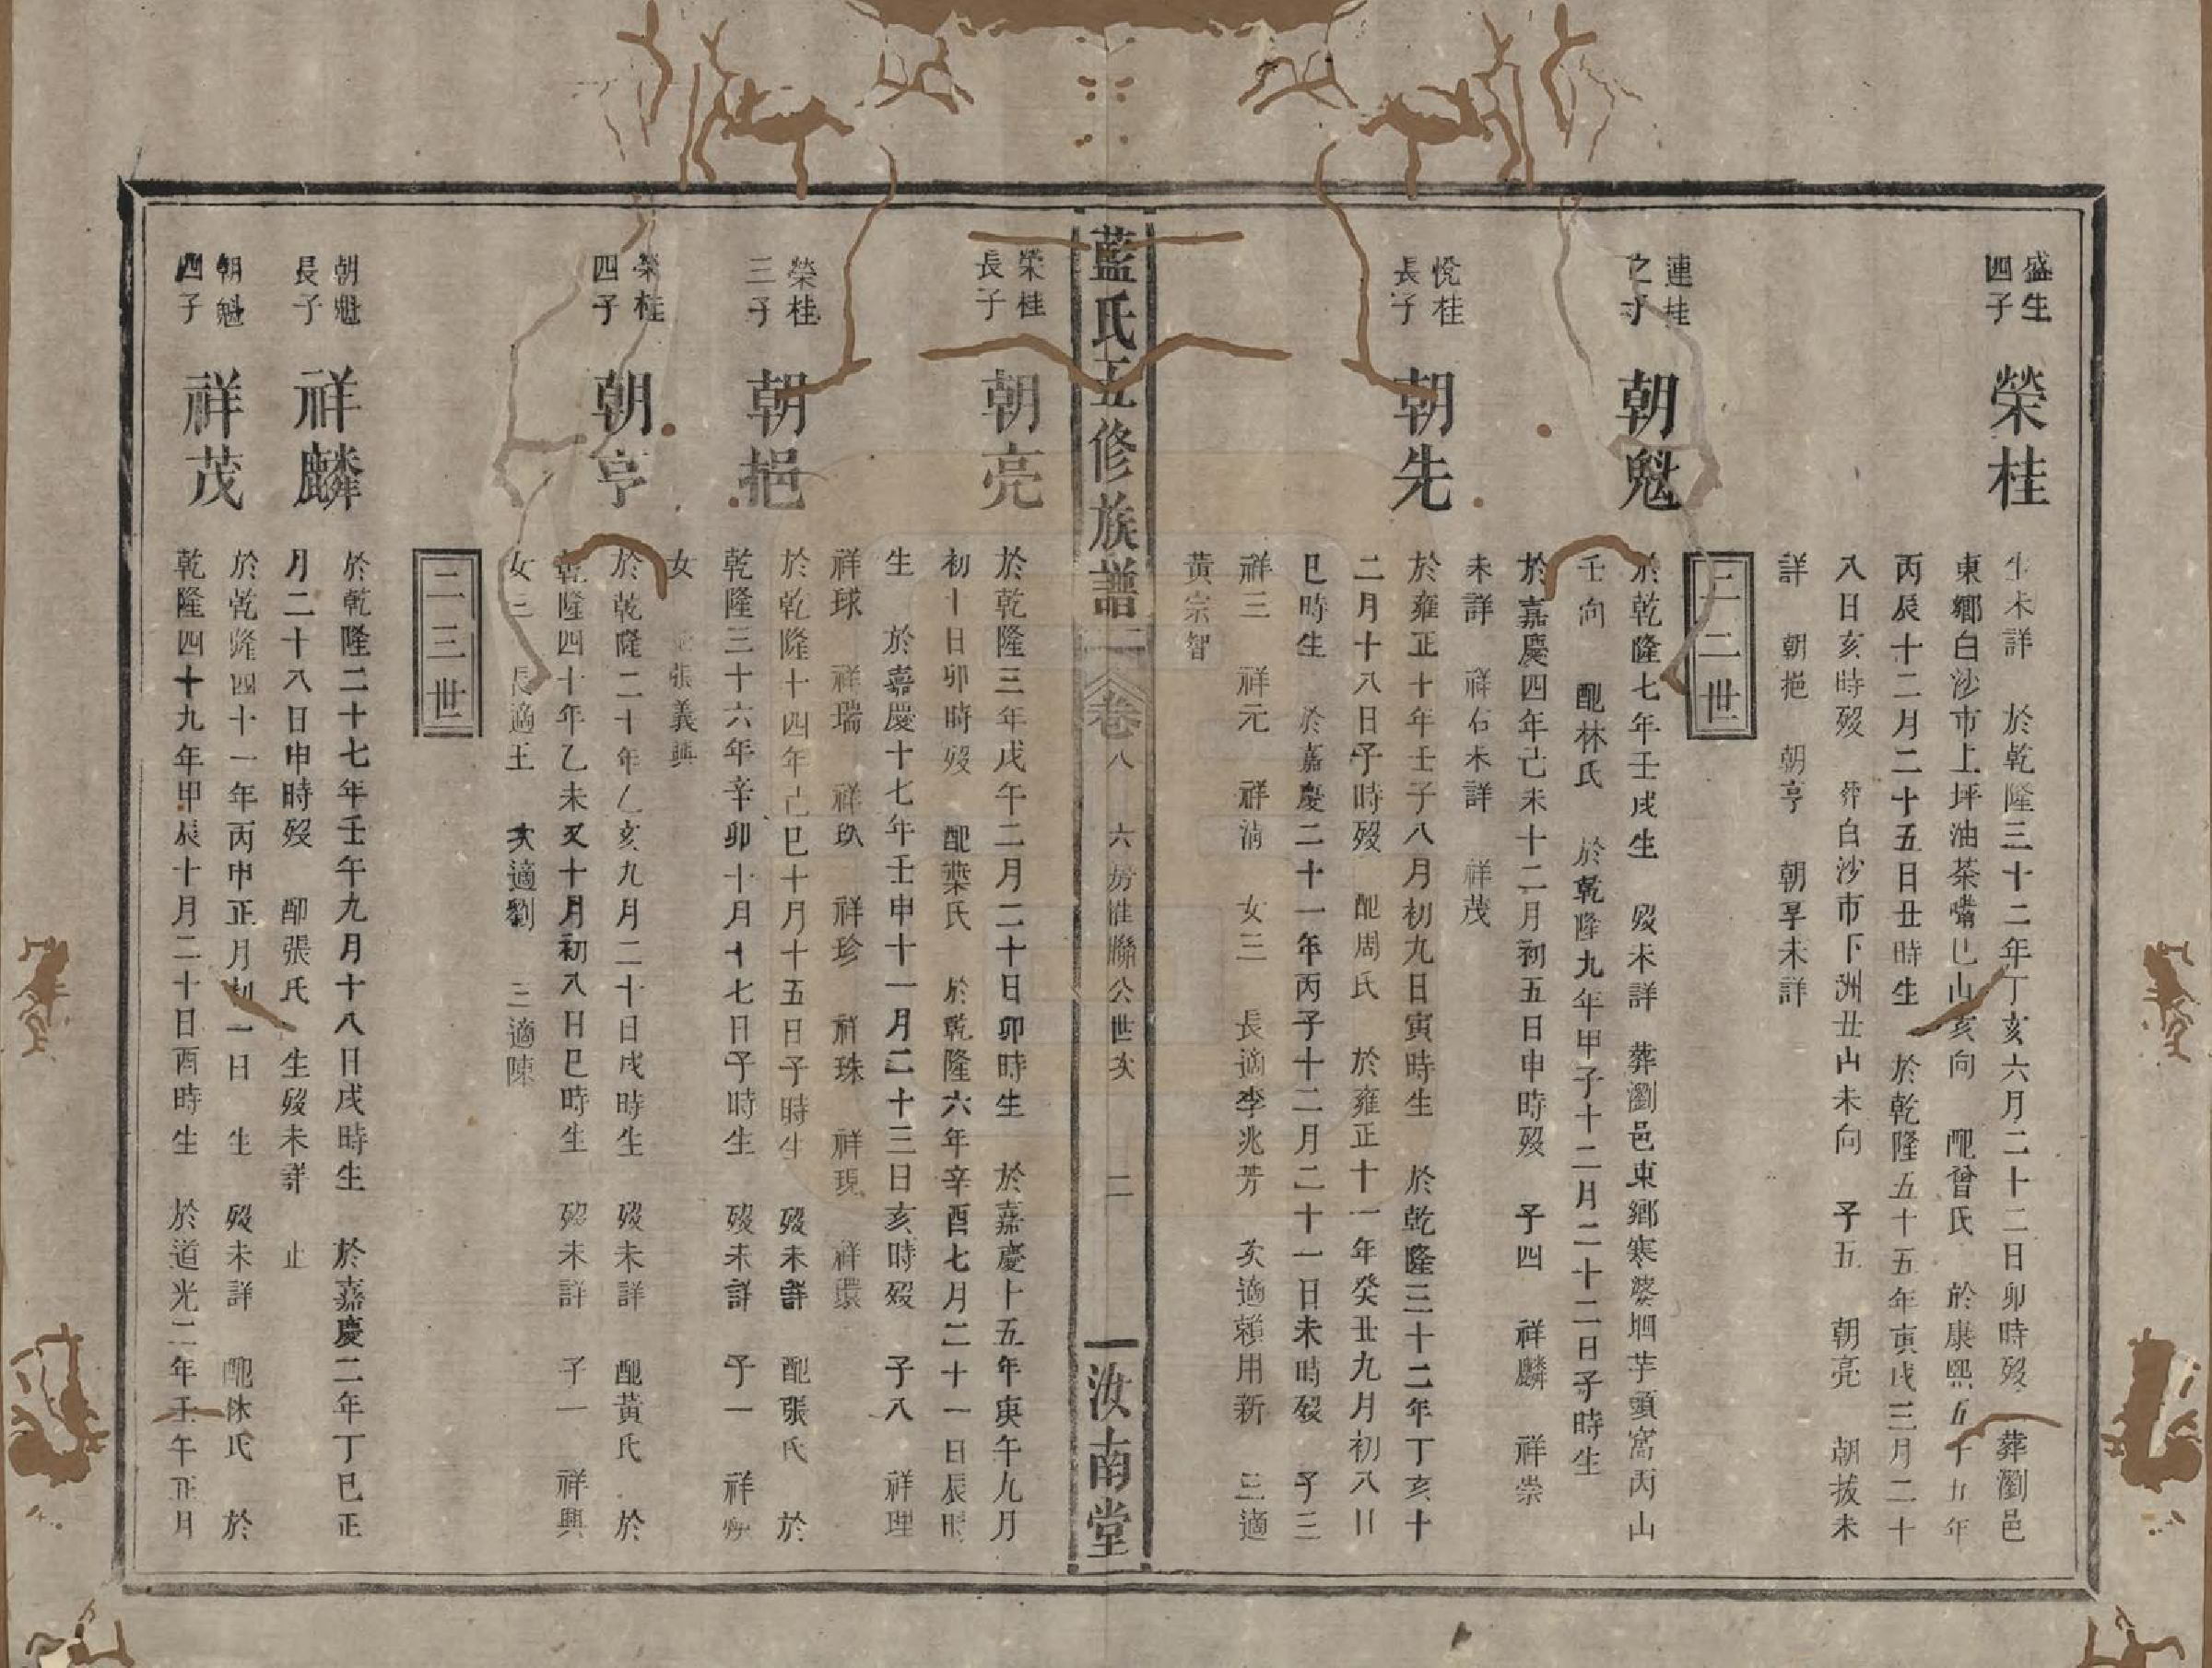 盛生
四子
榮桂
生未詳　於乾隆三十二年丁亥六月二十二日卯時歿　葬瀏邑
東鄉白沙市上坪油茶嘴巳山亥向　配曾氏　於康熙五十五年
丙辰十二月二十五日丑時生　於乾隆五十五年寅戌三月二十
八日亥時歿　葬白沙市下洲丑山未向　子五　朝亮　朝拔未
詳　朝挹　朝亨　朝早未詳
二二世
連桂
之子
朝魁
於乾隆七年壬戌生　歿未詳　葬瀏邑東鄉寒婆坳芋頭窩丙山
壬向　配林氏　於乾隆九年甲子十二月二十二日子時生
於嘉慶四年己未十二月初五日申時歿　子四　祥麟　祥崇
未詳　祥石未詳　祥茂
悅桂
長子
朝先
於雍正十年壬子八月初九日寅時生　於乾隆三十二年丁亥十
二月十八日子時歿　配周氏　於雍正十一年癸丑九月初八日
巳時生　於嘉慶二十一年丙子十二月二十一日未時歿　子三
祥三　祥元　祥滿　女三　長適李兆芳　次適賴用新　三適
黃宗智
藍氏五修族譜　卷八　六房淮聯公世次　二　汝南堂
榮桂
長子
朝亮
於乾隆三年戊午二月二十日卯時生　於嘉慶十五年庚午九月
初十日卯時歿　配葉氏　於乾隆六年辛酉七月二十一日辰時
生　於嘉慶十七年壬申十一月二十三日亥時歿　子八　祥理
祥球　祥瑞　祥玖　祥珍　祥珠　祥現　祥環
榮桂
三子
朝挹
於乾隆十四年己巳十月十五日子時生　歿未詳　配張氏　於
乾隆三十六年辛卯十月十七日子時生　歿未詳　子一　祥
女　張義興
榮桂
四子
朝亨
於乾隆二十年乙亥九月二十日戌時生　歿未詳　配黃氏　於
乾隆四十年乙未又十月初八日巳時生　歿未詳　子一　祥興
女三　長適王　次適劉　三適陳
二三世
朝魁
長子
祥麟
於乾隆二十七年壬午九月十八日戌時生　於嘉慶二年丁巳正
月二十八日申時歿　配張氏　生歿未詳　止
朝魁
四子
祥茂
於乾隆四十一年丙申正月初一日　生　歿未詳　配林氏　於
乾隆四十九年甲辰十月二十日酉時生　於道光二年壬午正月